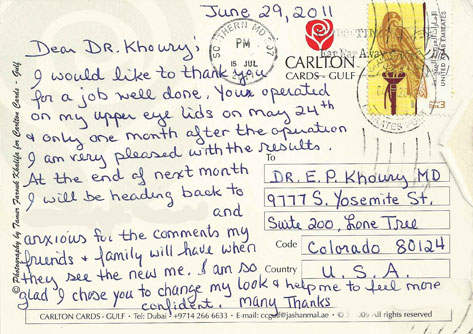 June 29, 2011
SOUTHERN MD 207
PM
15 JUL
Dear DR. Khoury:
I would like to thank you
for a job well done. Your operated
on my upper eye lids on May 24th
& only one month after the operation
I am very pleased with the results.
At the end of next month
I will be heading back to
and
anxious for the comments my
friends & family will have when
they see the new me. I am so
glad I chose you to change my look & help me to feel more
confident. many Thanks
CARLTON
CARDS - GULF
UNITED ARAB EMIRATES
To
DR. E.P. KHOURY MD
9777 S. Yosemite St.
Suite 200, Lone Tree
Code Colorado 80124
Country U.S.A.
© Photography by Tanor Farouk Khalifa for Carlton Cards - Gulf
CARLTON CARDS - GULF • Tel: Dubai • +9714 266 6633 • E-mail: ccgulf@jashanmal.ae • © All rights reserved